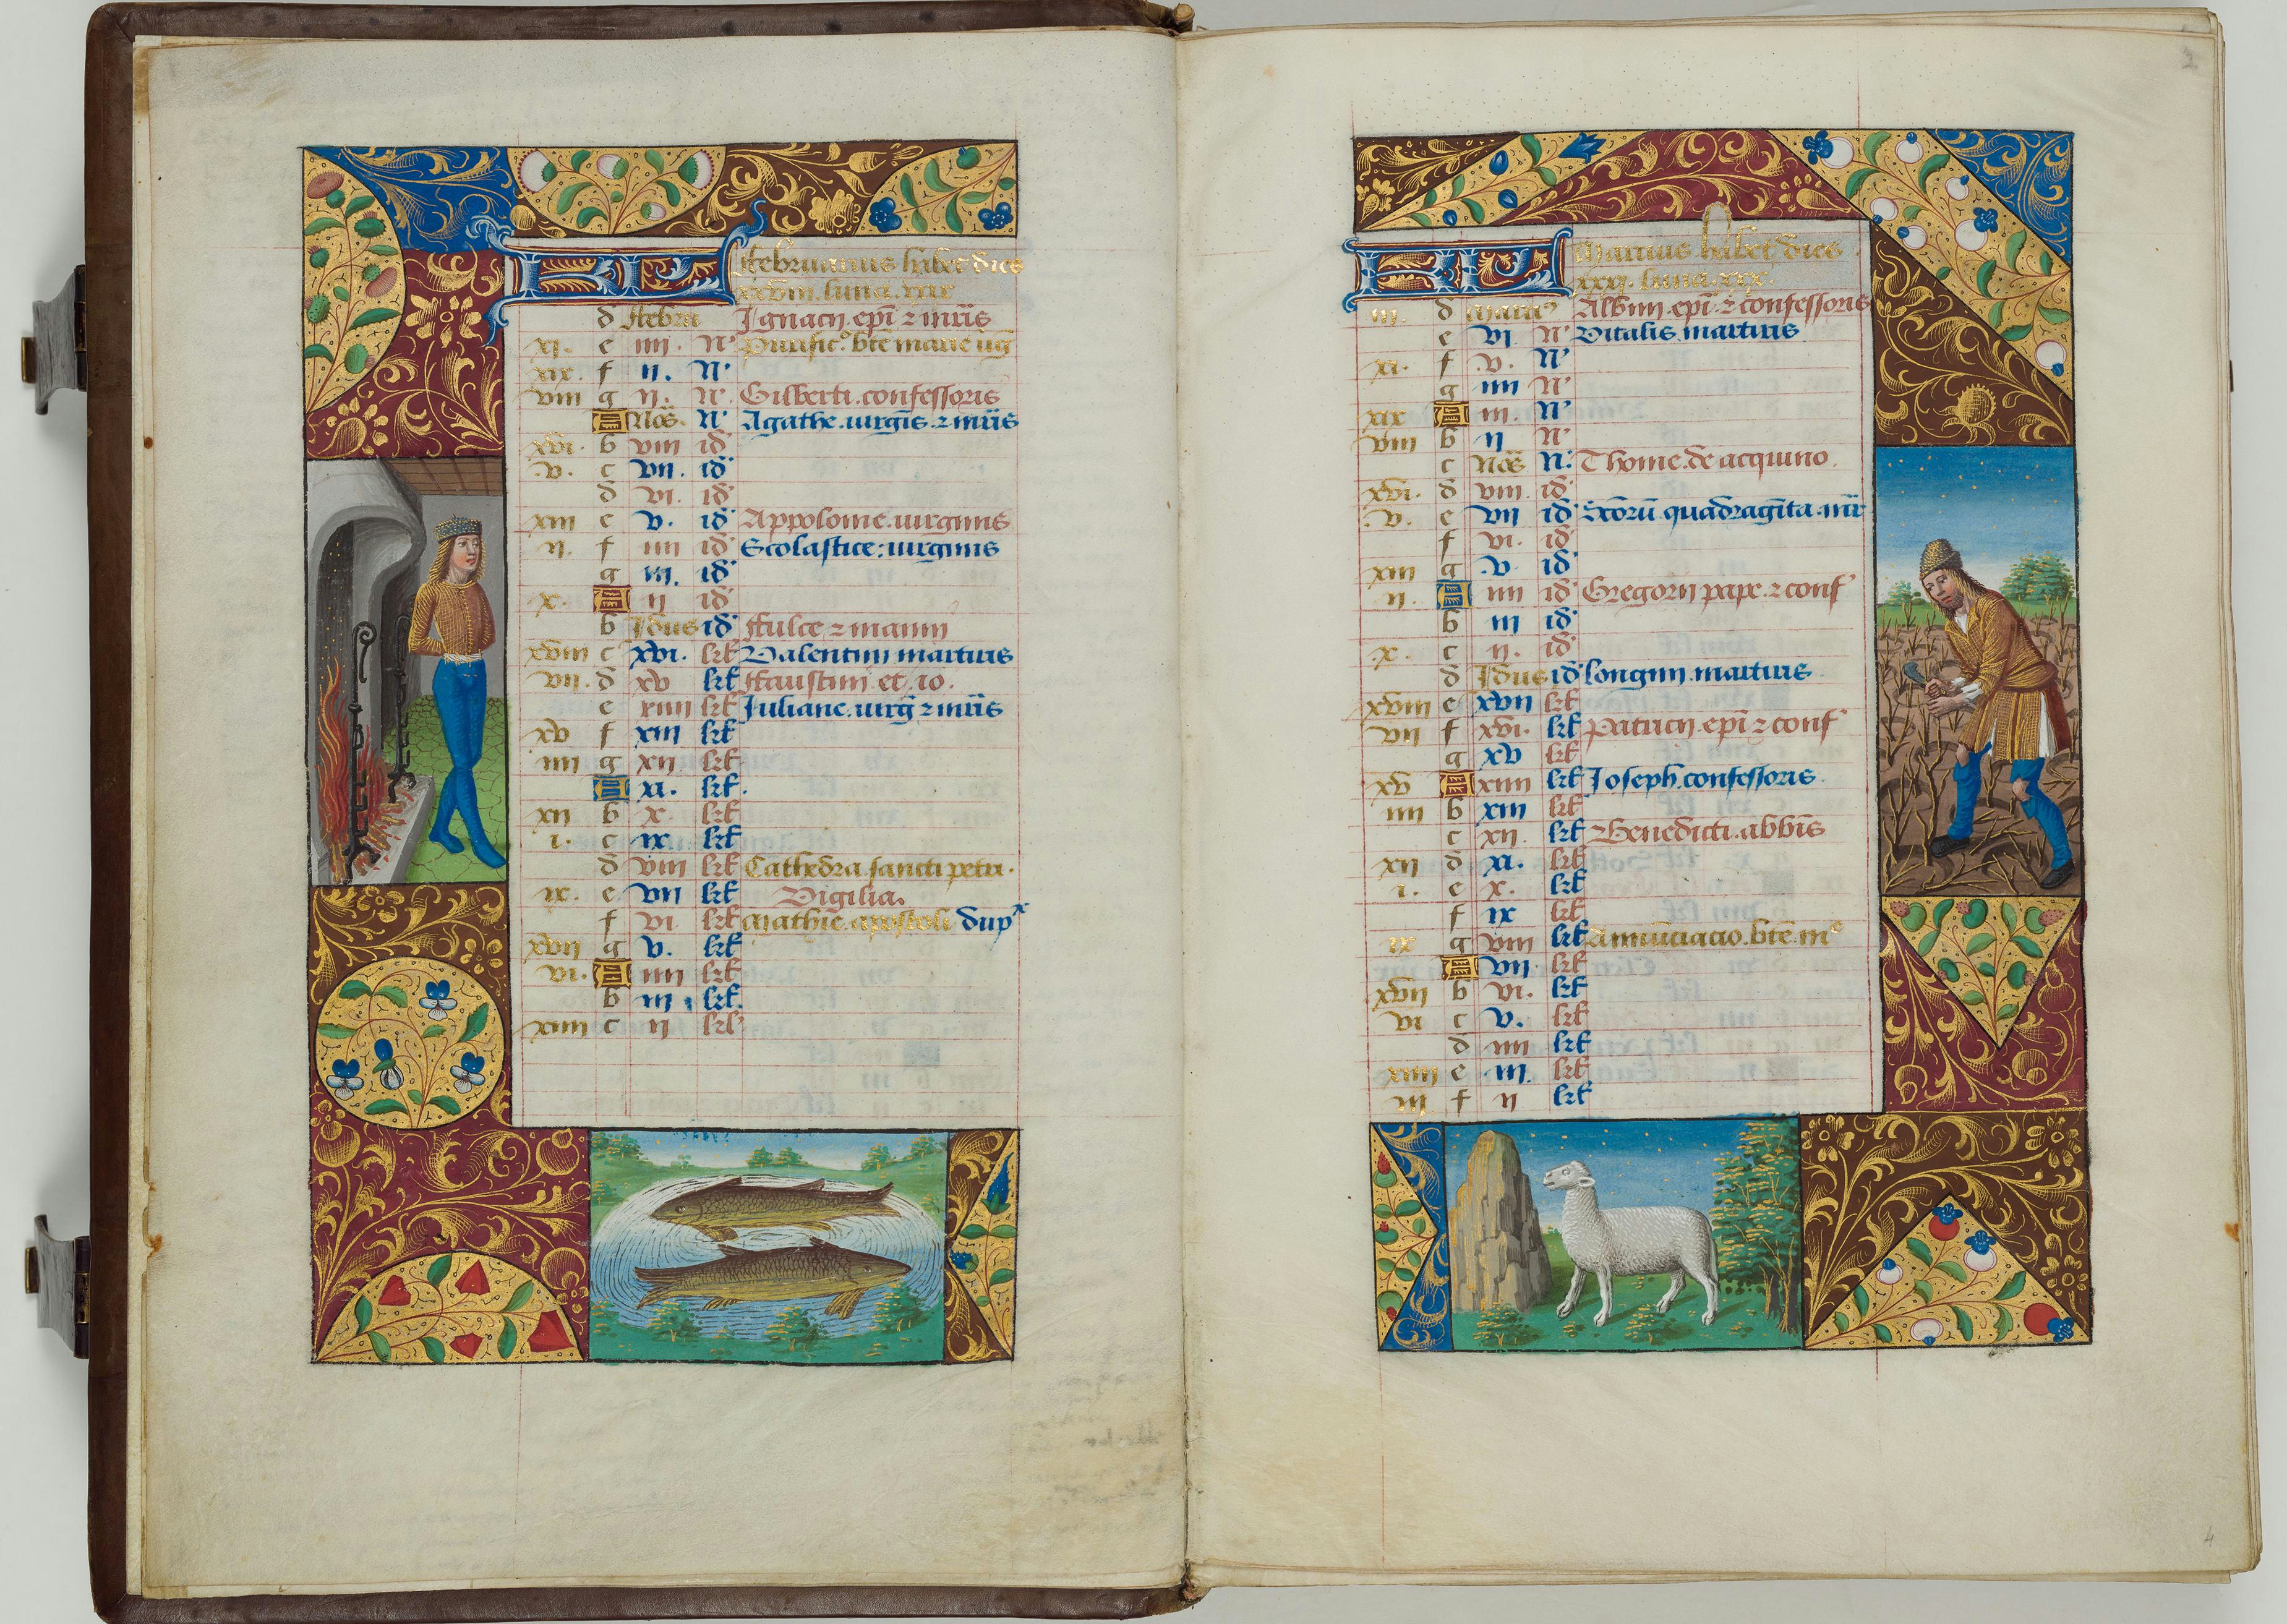 KL Februarius habet dies
xxviii. luna. xxix
d Febru Ignacii. epi. ⁊ mris
xi. e iiii. N' Purific°. bte marie v̄g
xix. f ii. N'
viii g ii. N' Gilberti. confessoris
A Nōs. N' Agathe. virgīs. ⁊ mris
xvi. b viii id'
v. c vii. id'
d vi. id'
xiii e v. id' Appolonie. virginis
ii. f iiii id' Scolastice: virginis
g iii. id'
x. A ii id'
b Idus id' Fulce ⁊ maurii
xviii c xvi. klt Valentini martiris
vii. d xv klt Faustini et io.
e xiiii klt Iuliane. virg ⁊ mris
xv f xiii klt
iiii g xii klt
A xi. klt.
xii b x. klt
i. c ix. klt
d viii klt Cathedra. sancti petri.
ix. e vii klt Vigilia.
f vi klt Mathie. apostoli dupx
xvii g v. klt
vi. A iiii klt
b iii. klt.
xiiii c ii klt
KL Marcius habet dies
xxxi. luna. xxx.
iii. d Marci9 Albini. epi. ⁊ confessoris
e vi N' Vitalis. martiris
xi. f .v. N'
g iiii N'
xix A iii. N'
viii b ii N'
c Nōs N' Thome. de acquino.
xvi. d viii id'
.v. e vii id' Scorū. quadragīta. mr
f vi. id'
xiii g .v. id'
ii. A iiii id' Gregorii pape. ⁊ conf'
b iii id'
.x. c ii. id'
d Idus id' longini. martiris
xviii e xvii klt
vii f xvi. klt Patricii. epi ⁊ conf'
g xv klt
xv A xiiii klt Joseph. confessoris.
iiii b xiii klt
c xii. klt Benedicti. abbīs
xii d xi. klt
i. e x. klt
f ix klt
ix g viii klt Annūciacio. bte. m°
A vii klt
xvii b vi. klt
vi c v. klt
d iiii klt
xiiii e iii. klt
iii f ii klt
2
4